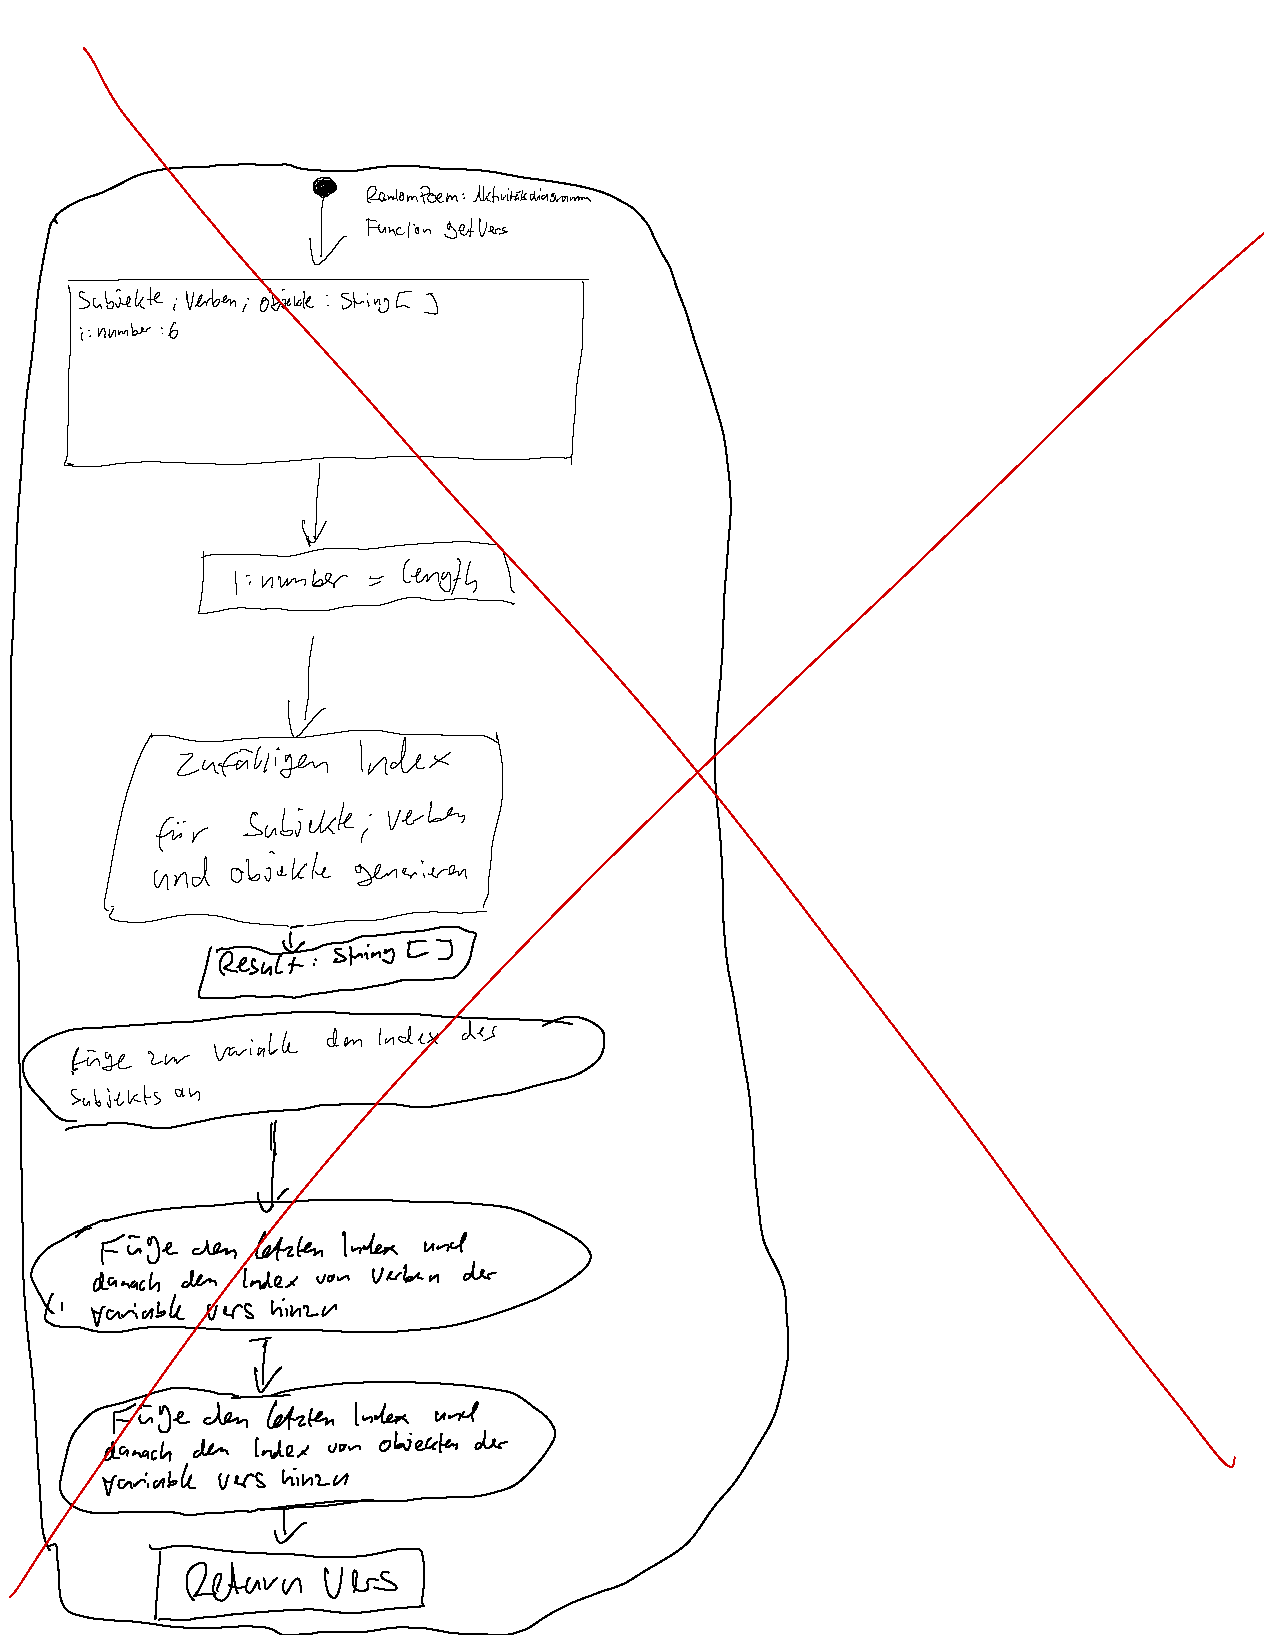 RandomPoem: Aktivitätsdiagramm
Funcion getVers
Subjekte ; Verben ; Objekte : String [ ]
i : number : 6
i : number = length
Zufälligen Index
für Subjekte ; Verben
und Objekte generieren
Result : String [ ]
Füge zur variable den Index des
Subjekts an
Füge den letzten Index und
danach den Index von Verben der
Variable Vers hinzu
Füge den letzten Index und
danach den Index von Objekten der
Variable Vers hinzu
Return Vers